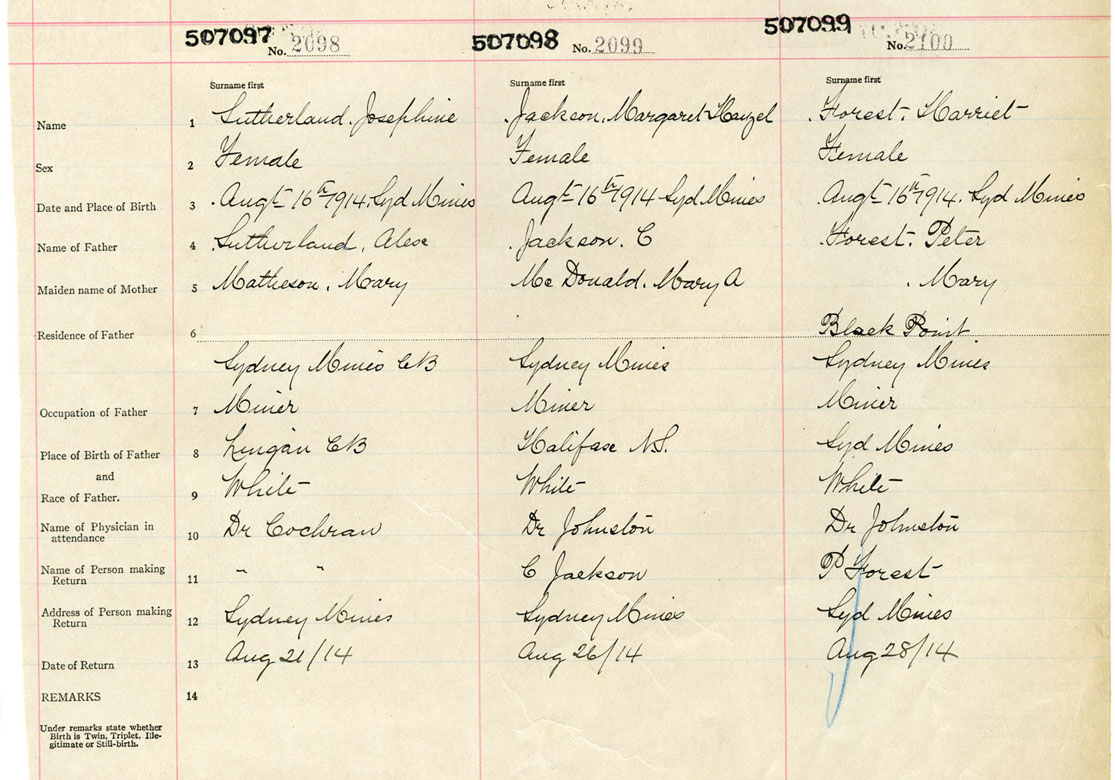 507097 No. 2098 507098 No. 2099 507099 No. 2100
Surname first Surname first Surname first
Name 1 Sutherland, Josephine Jackson, Margaret Hanzel Forest, Harriet
Sex 2 Female Female Female
Date and Place of Birth 3 Augt 16th 1914, Syd Mines Augt 16th 1914 Syd Mines Augt 16th 1914. Syd Mines
Name of Father 4 Sutherland, Alex Jackson. C Forest, Peter
Maiden name of Mother 5 Matheson, Mary Mc Donald, Mary A , Mary
Residence of Father 6 Black Point
Sydney Mines CB Sydney Mines Sydney Mines
Occupation of Father 7 Miner Miner Miner
Place of Birth of Father 8 Lingan CB Halifax N.S. Syd Mines
and
Race of Father. 9 White White White
Name of Physician in attendance 10 Dr Cochran Dr Johnston Dr Johnston
Name of Person making Return 11 " " C Jackson P Forest
Address of Person making Return 12 Sydney Mines Sydney Mines Syd Mines
Date of Return 13 Aug 21/14 Aug 26/14 Aug 28/14
REMARKS 14
Under remarks state whether
Birth is Twin, Triplet, Ille-
gitimate or Still-birth.